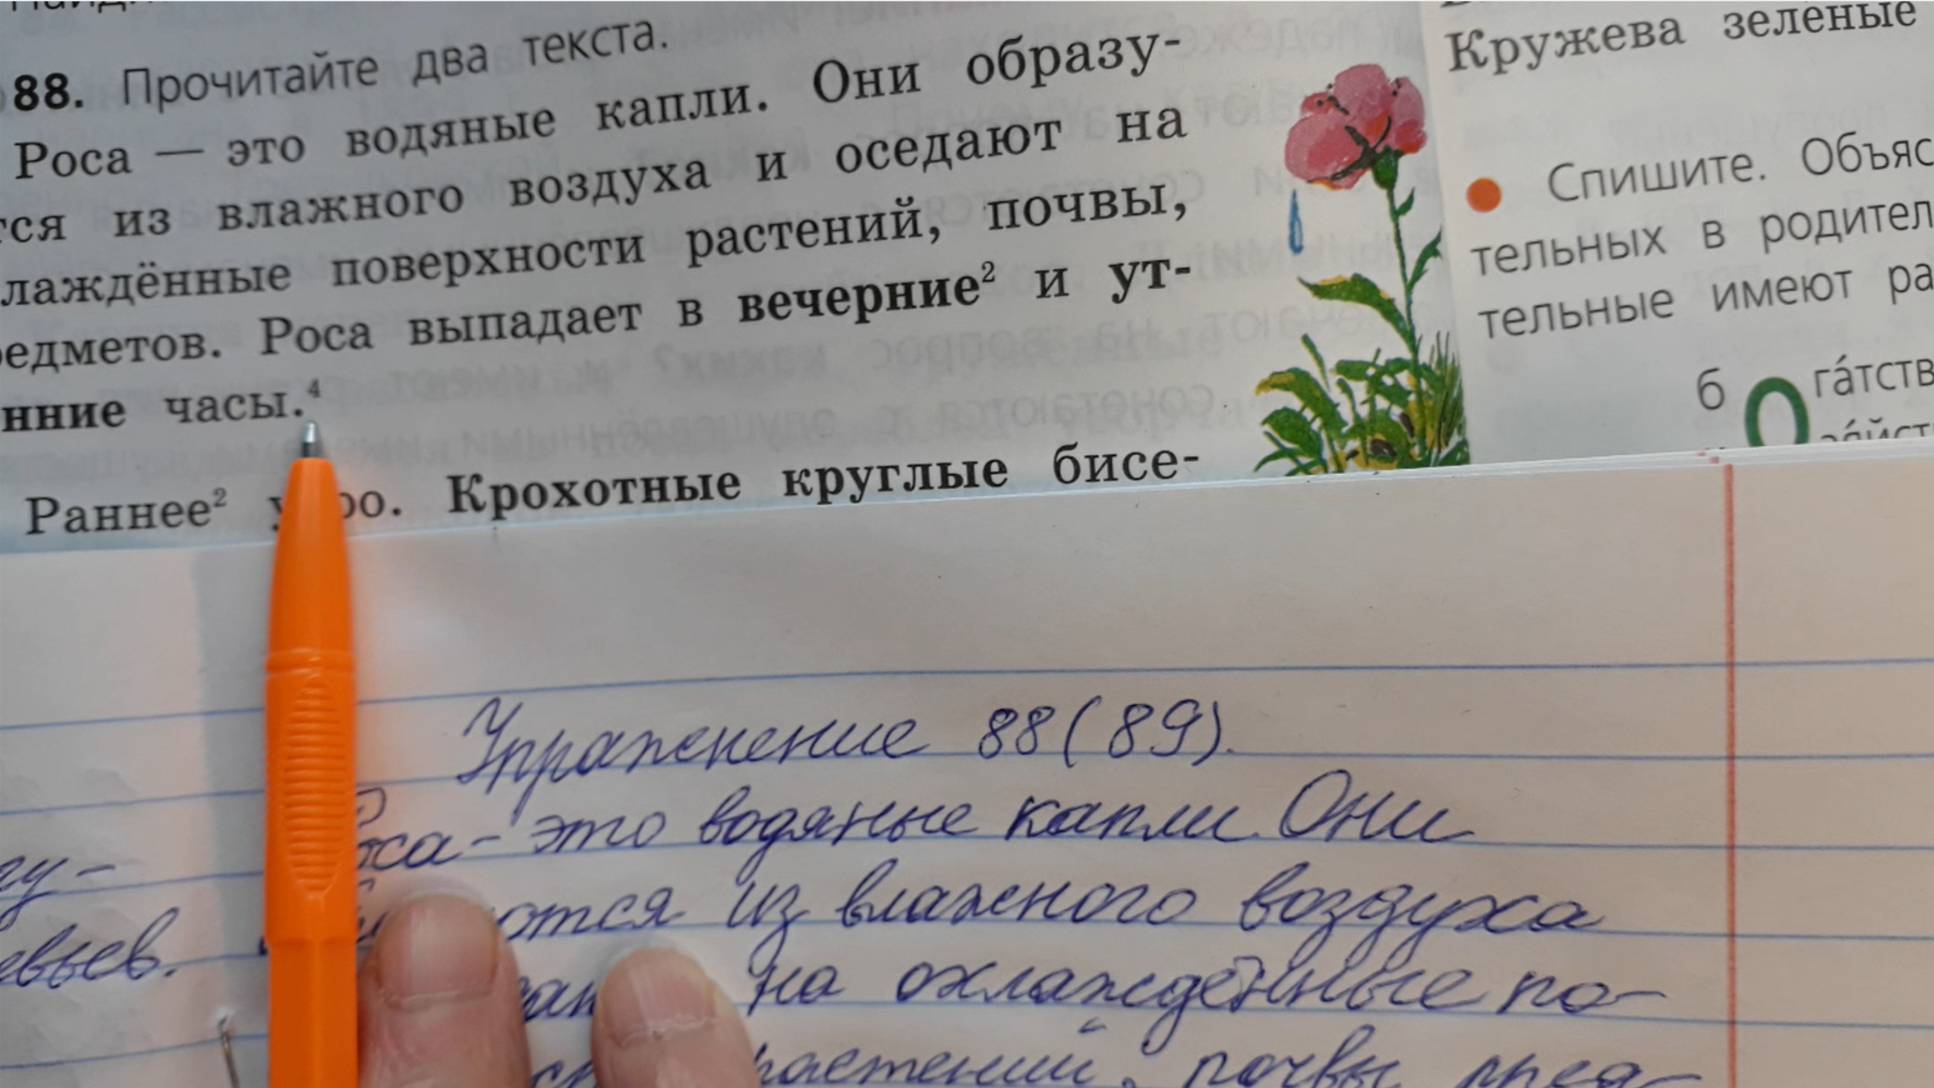 88. Прочитайте два текста.
Роса — это водяные капли. Они образу-
тся из влажного воздуха и оседают на
лаждённые поверхности растений, почвы,
едметов. Роса выпадает в вечерние² и ут-
нние часы.⁴
Раннее² утро. Крохотные круглые бисе-
Кружева зелёные
Спишите. Объяс
тельных в родител
тельные имеют ра
б о га́тств
Упражнение 88(89).
Роса - это водяные капли. Они
ются из влажного воздуха
на охлаждённые по-
растений, почвы, пред-
гу-
евьев.